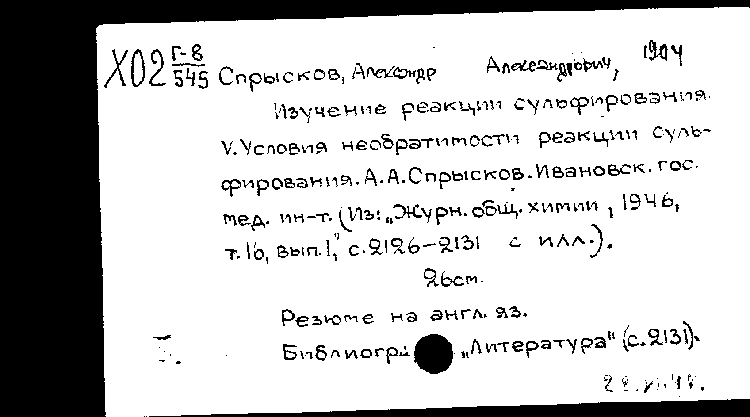 Х02 Г-8/545 Спрысков, Александр Александрович, 1904
Изучение реакции сульфирования.
V. Условия необратимости реакции суль-
фирования. А.А. Спрысков. Ивановск. гос.
мед. ин-т. (Из: „Журн. общ. химии, 1946,
т. 16, вып. 1," с. 2126-2131 с илл.).
26 см.
Резюме на англ. яз.
Библиогр „Литература" (с. 2131).